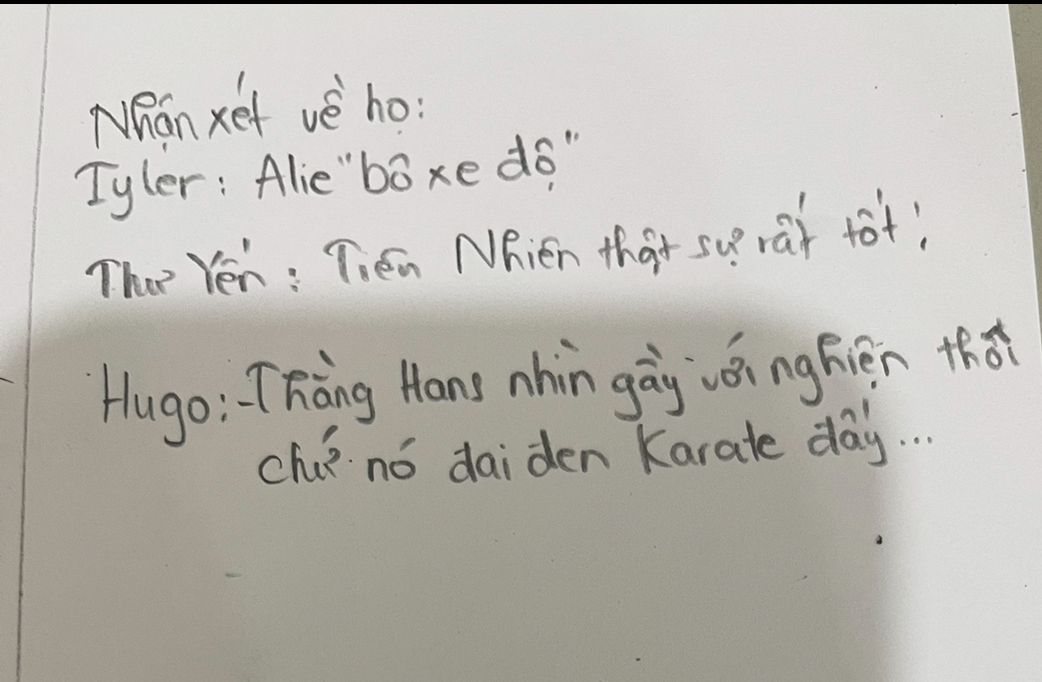 Nhận xét về họ:
Tyler: Alie "bô xe độ"
Thư Yến: Tiên Nhiên thật sự rất tốt!
Hugo: -Thằng Hans nhìn gầy với nghiện thôi
chứ nó đai đen Karate đấy...